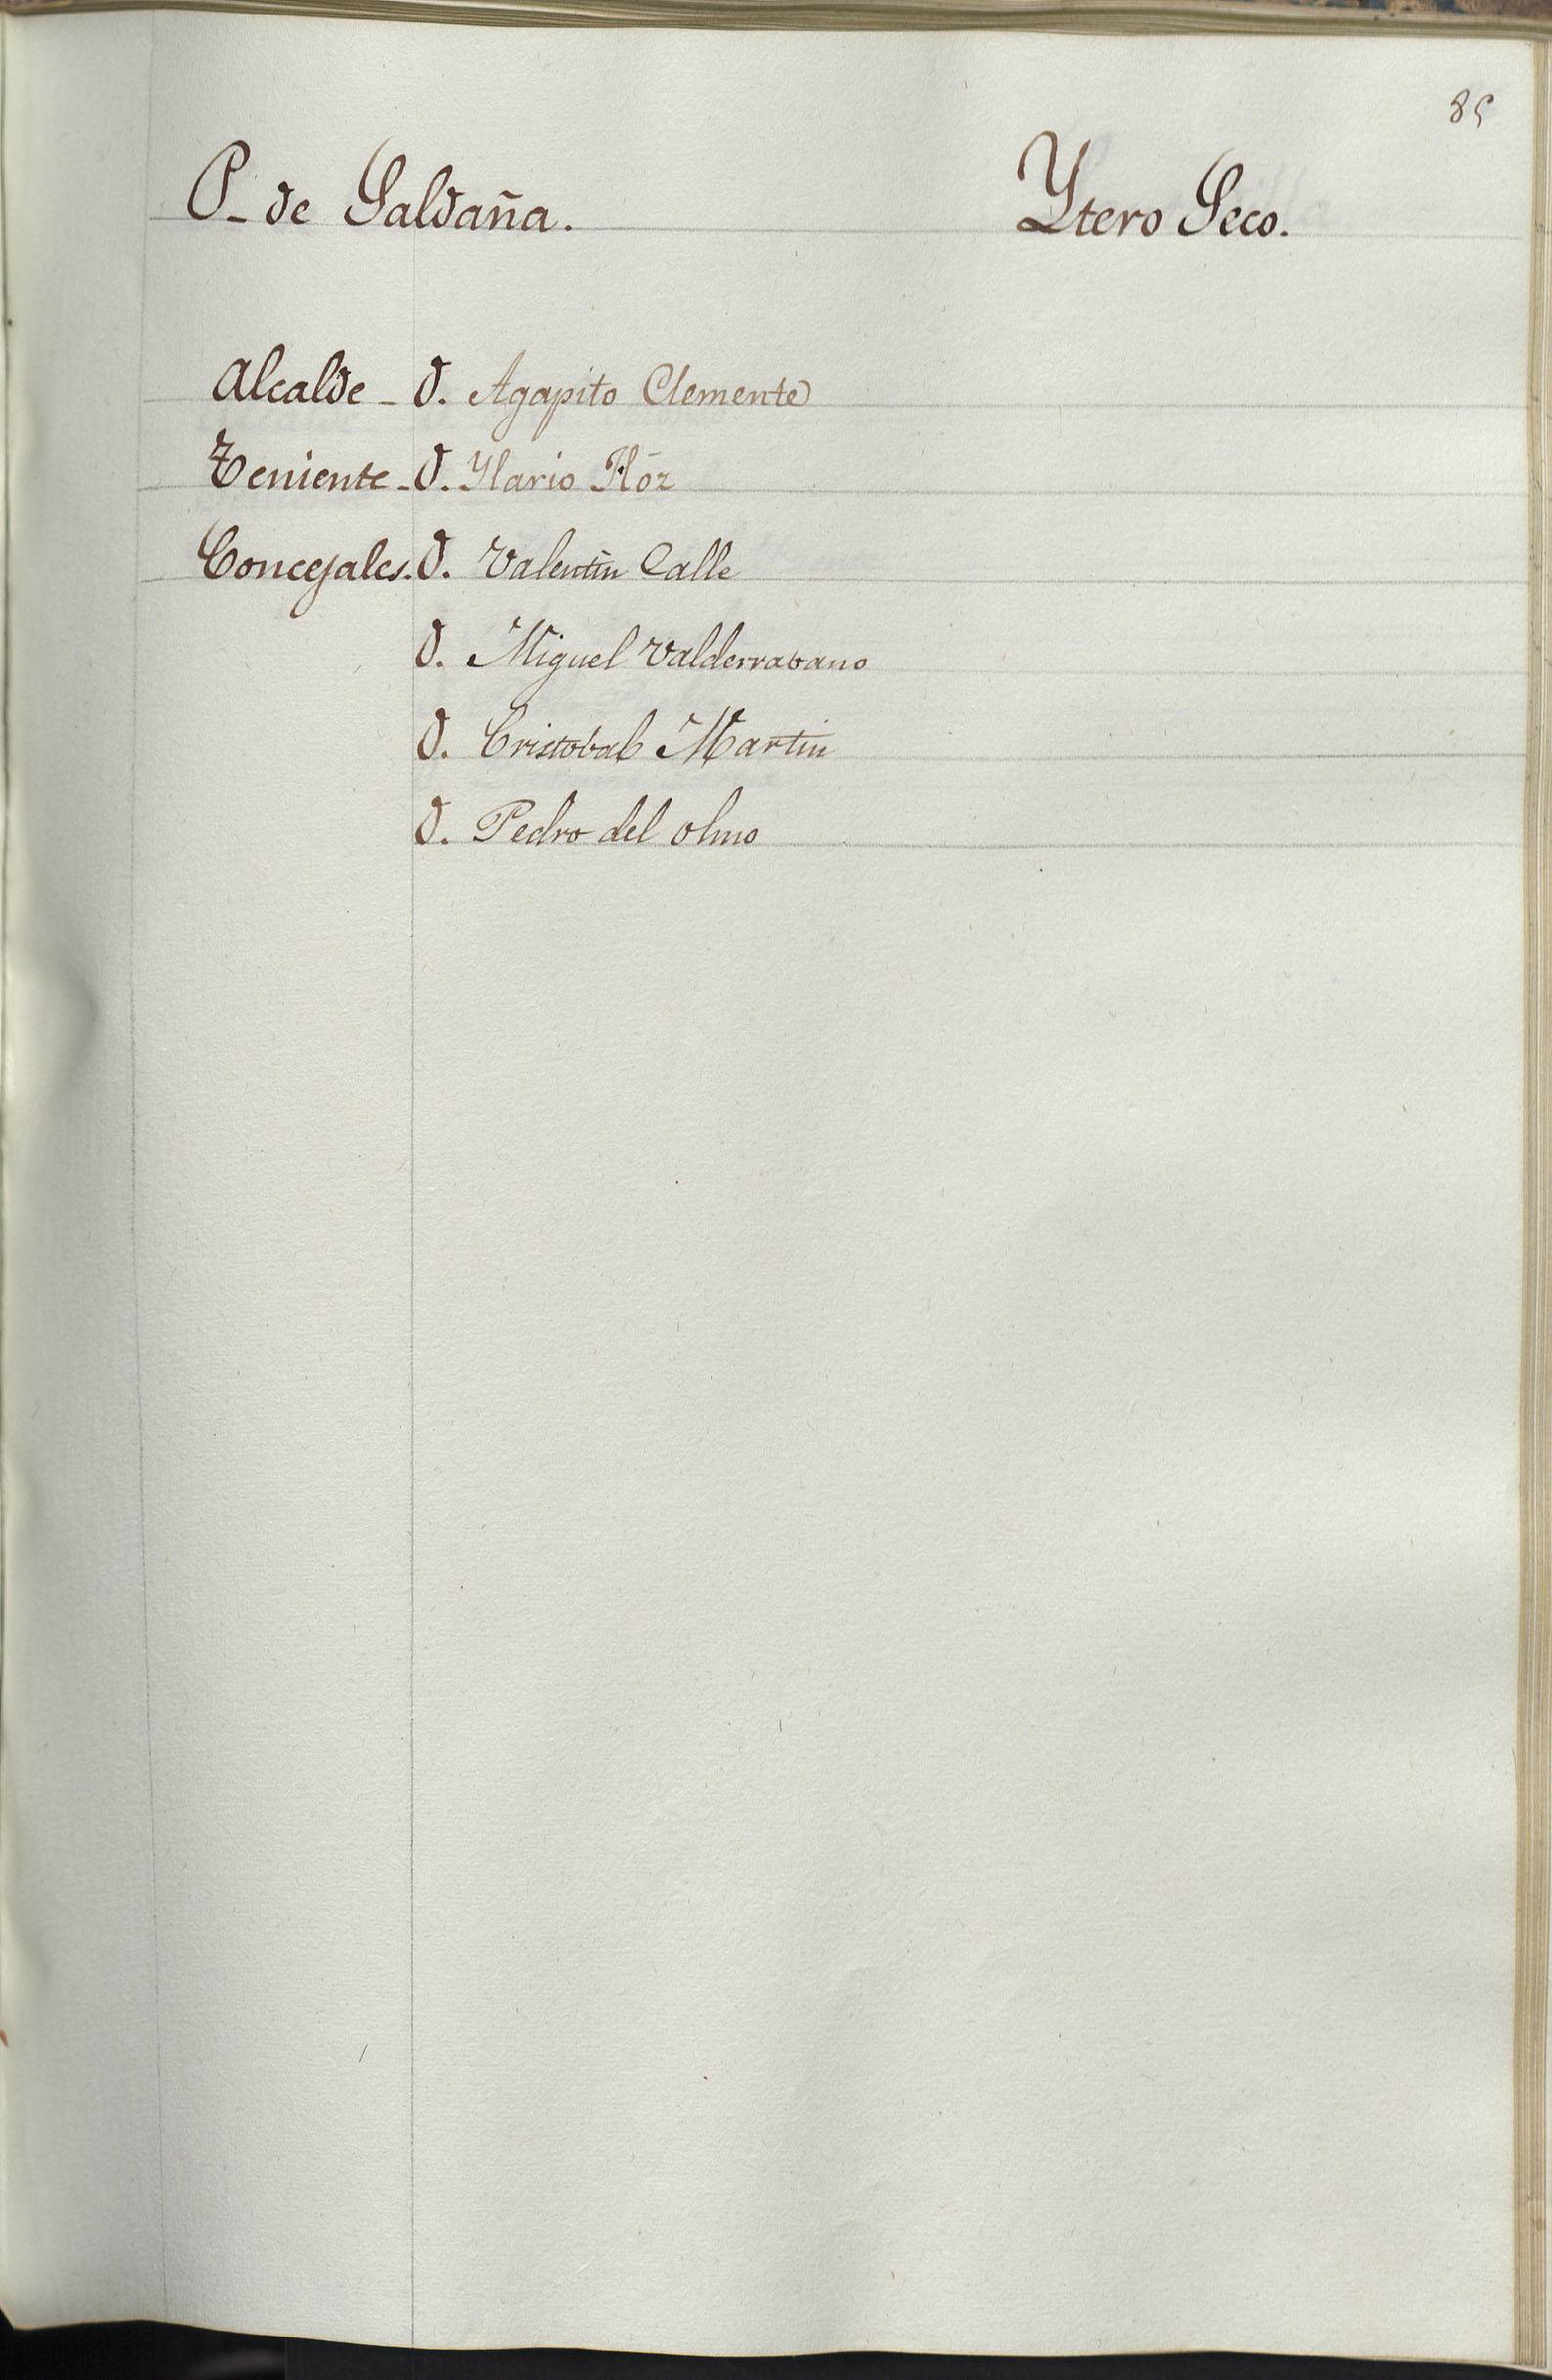 85
P. de Saldaña. Ytero Seco.
Alcalde - D. Agapito Clemente
Teniente - D. Ylario Flóz
Concejales. D. Valentin Calle
D. Miguel Valderrabano
D. Cristobal Martin
D. Pedro del olmo